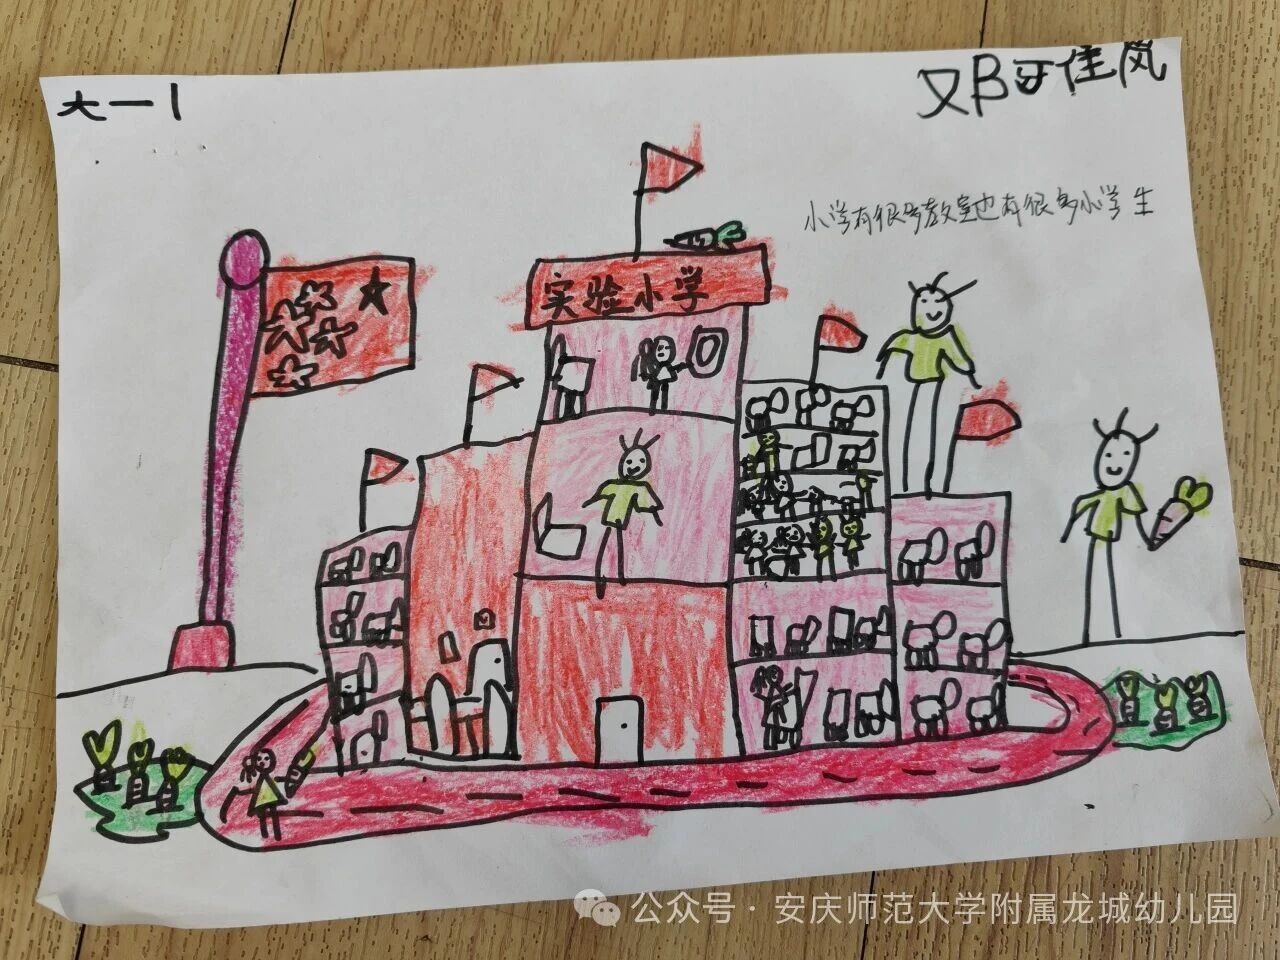 大一1
邓 佳
小学有很多教室也有很多小学生
实验小学
公众号 · 安庆师范大学附属龙城幼儿园